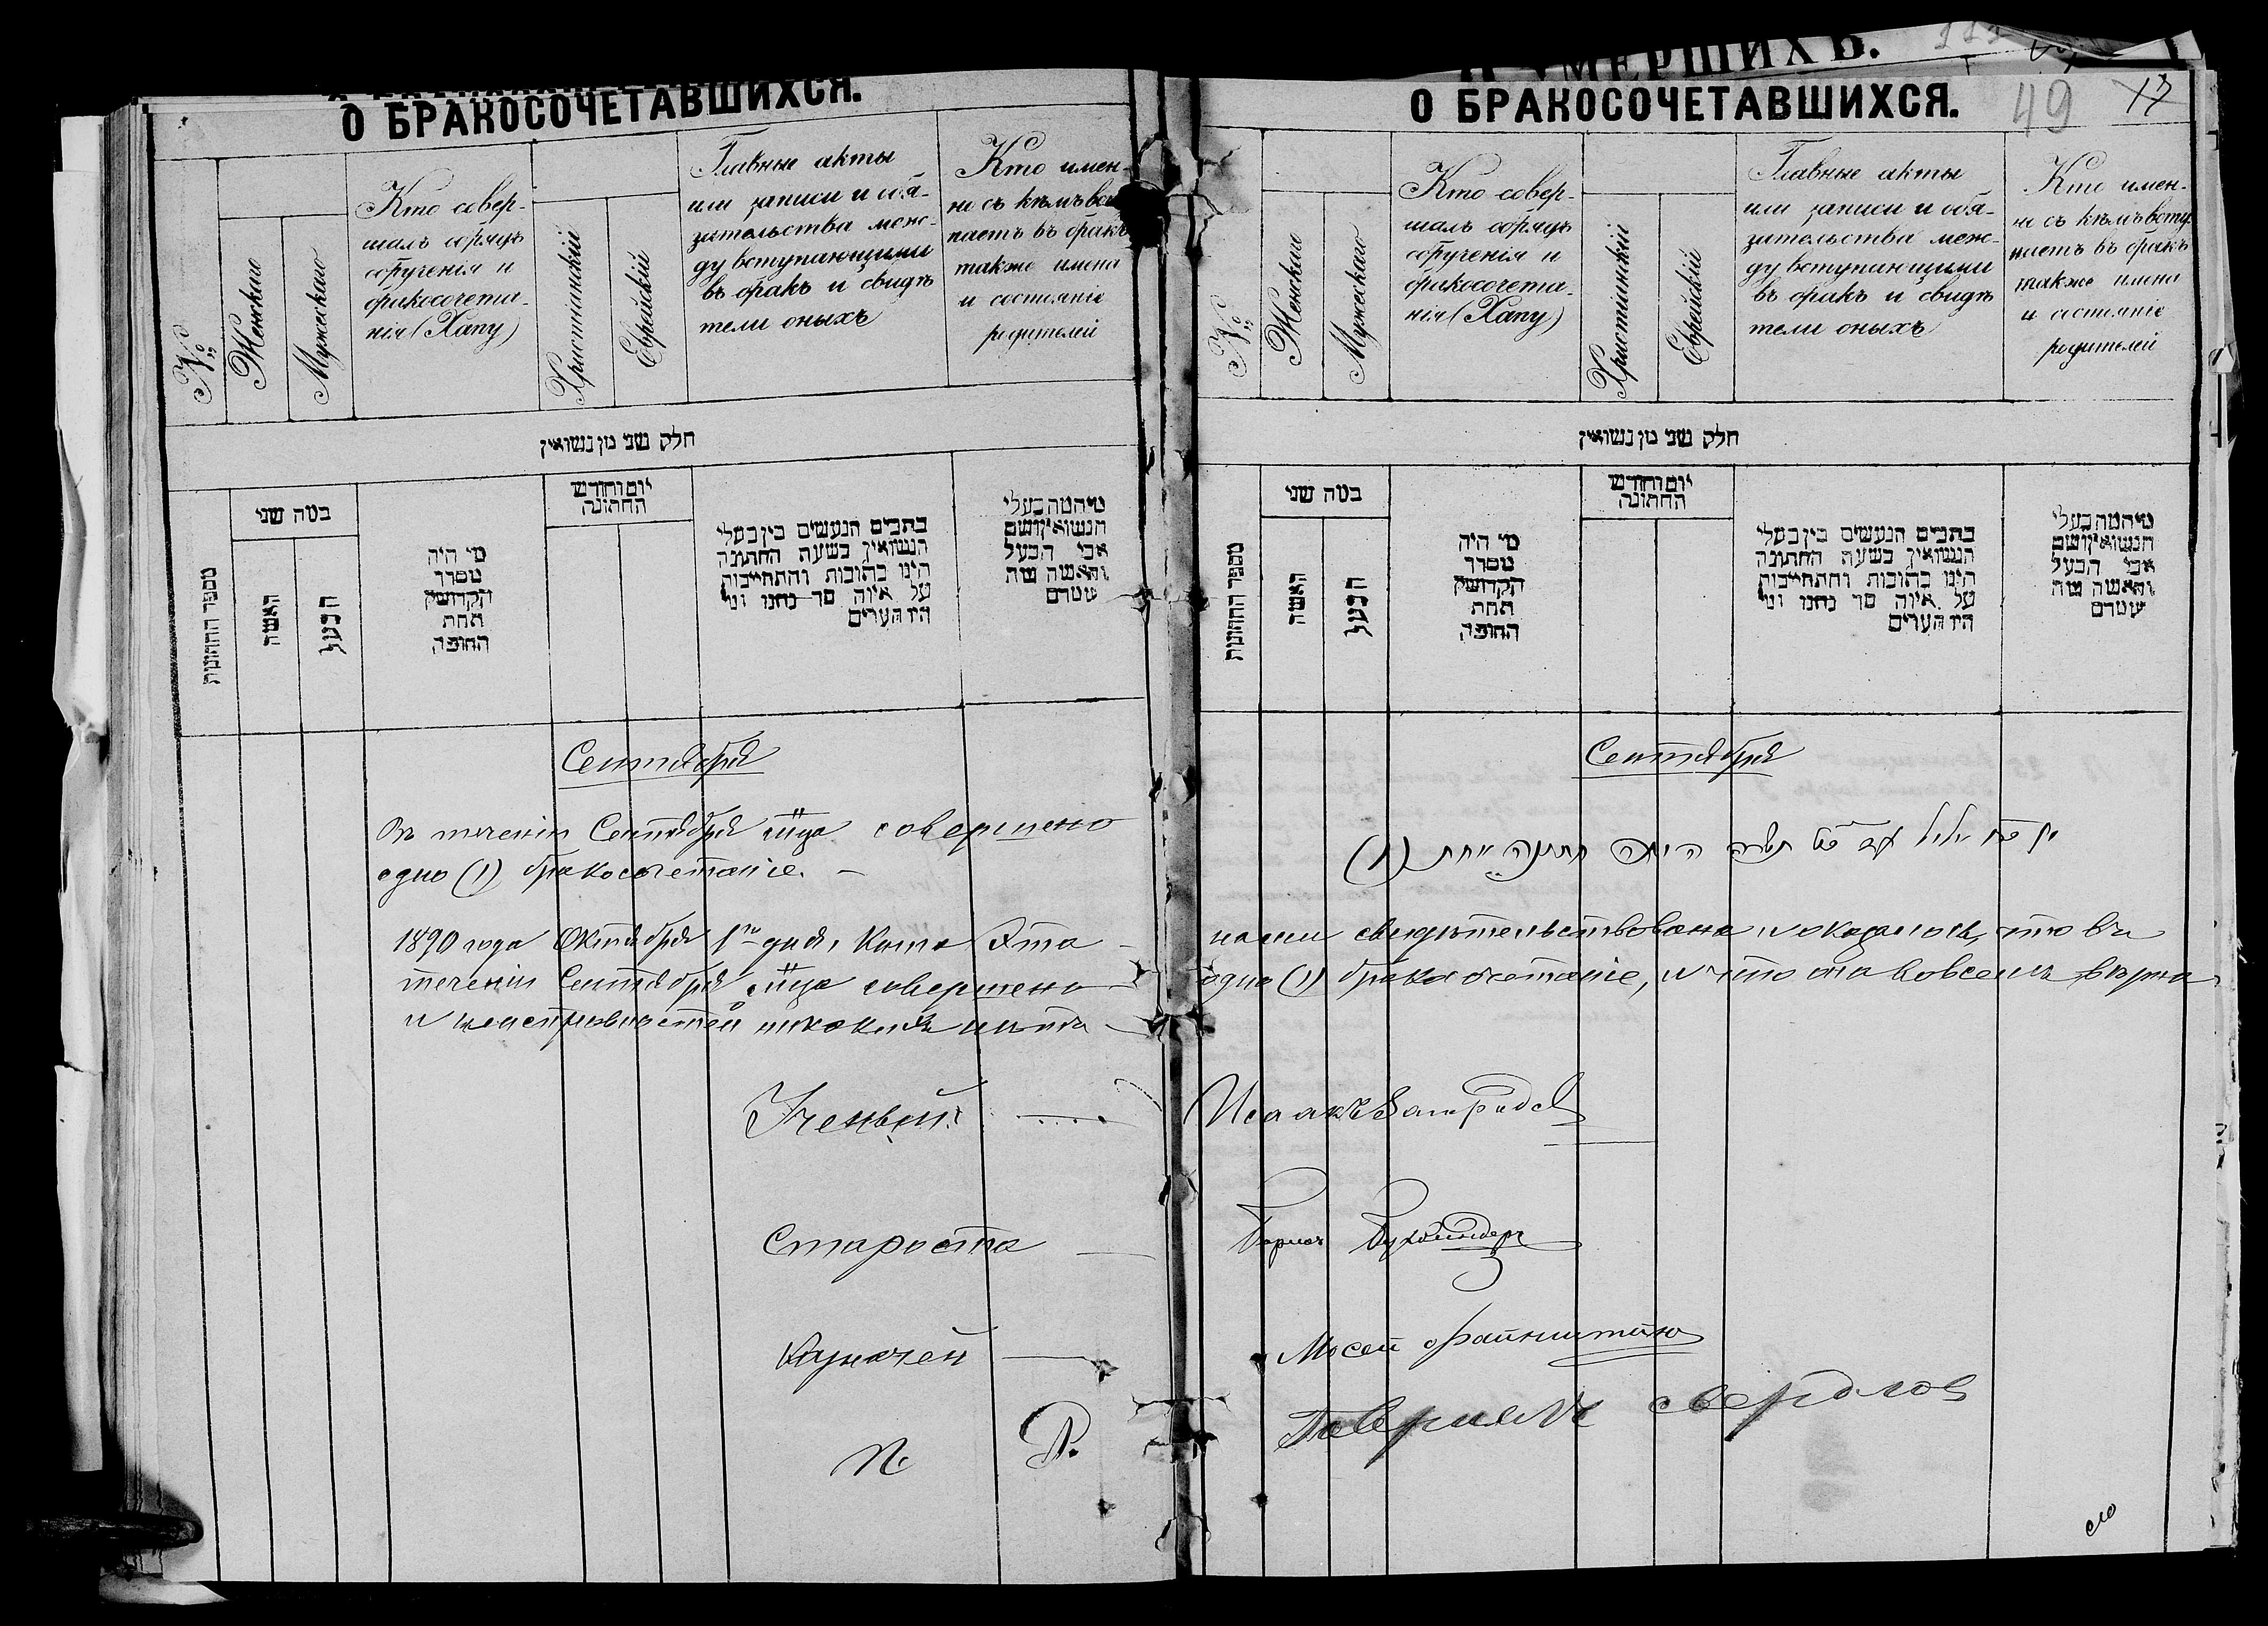 О БРАКОСОЧЕТАВШИХСЯ.
№
Женскаго
Мужескаго
Кто совер-
шалъ обрядъ
обрученія и
бракосочета-
нія (Хапу)
Христіанскій
Еврейскій
Главные акты
или записи и обя-
зательства меж-
ду вступающими
въ бракъ и свидѣ
тели оныхъ
Кто имен-
но съ кѣмъ всту
паетъ въ бракъ
также имена
и состояніе
родителей
חלק שני מן נשואין
מספר החתונות
כמה שני
האשה
הבעל
מי היה
מסדר
הקדושין
תחת
החופה
יום וחודש
החתונה
כתבים הנעשים בין בעלי
הנשואין בשעת החתונה
היינו כתובות והתחייבות
על איזה סך נתנו ומי
היו העדים
מי המה בעלי
הנשואין ושם
אבי הבעל
והאשה מה
שמם
Сентября
Въ теченіи Сентября м-ца совершено
одно (1) бракосочетаніе. —
1890 года Октября 1го дня, Книга Эта
теченіи Сентября м-ца совершено
и неисправностей никакихъ нѣтъ
Ученый
Староста
Казначей
П. Р.
О УМЕРШИХЪ.
О БРАКОСОЧЕТАВШИХСЯ.
49 17
№
Женскаго
Мужескаго
Кто совер-
шалъ обрядъ
обрученія и
бракосочета-
нія (Хапу)
Христіанскій
Еврейскій
Главные акты
или записи и обя-
зательства меж-
ду вступающими
въ бракъ и свидѣ
тели оныхъ
Кто имен-
но съ кѣмъ всту
паетъ въ бракъ
также имена
и состояніе
родителей
חלק שני מן נשואין
מספר החתונות
כמה שני
האשה
הבעל
מי היה
מסדר
הקדושין
תחת
החופה
יום וחודש
החתונה
כתבים הנעשים בין בעלי
הנשואין בשעת החתונה
היינו כתובות והתחייבות
על איזה סך נתנו ומי
היו העדים
מי המה בעלי
הנשואין ושם
אבי הבעל
והאשה מה
שמם
Сентября
תשרי היתה חתונה אחת (1)
нами свидѣтельствована и оказалось, что въ
одно (1) бракосочетаніе, и что она вовсемъ вѣрна
Исаакъ
Борисъ Бухбиндеръ
Мосей Файнштейнъ
Гавріилъ Свердлов